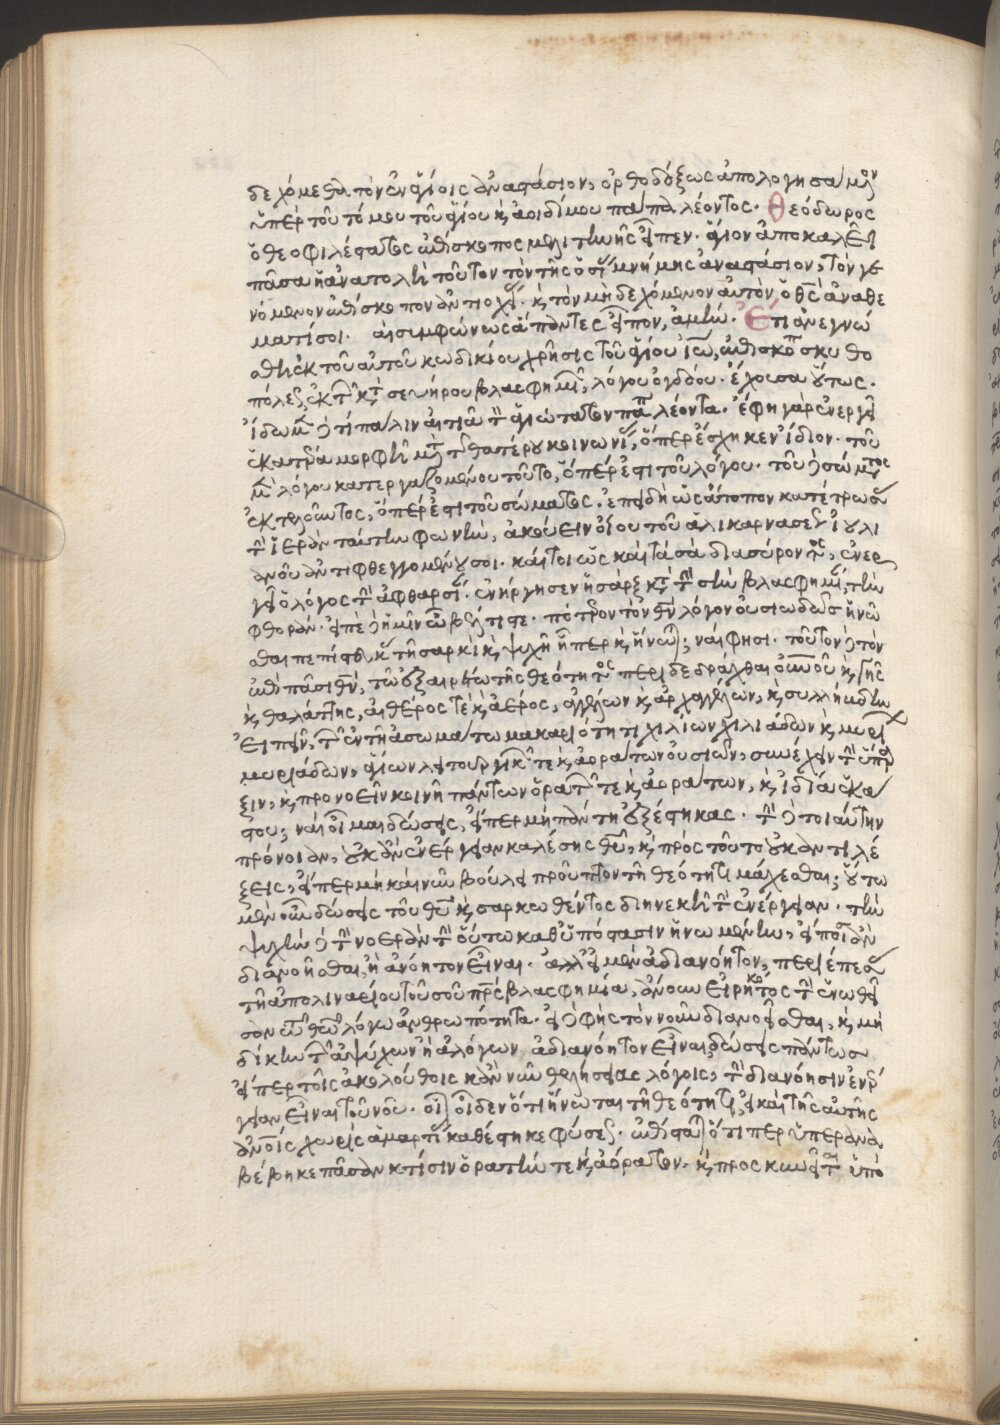 δεχόμεθα τὸν ἐν ἁγίοις ἀναστάσιον, ὀρθοδόξως ἀπολογησάμενον
ὑπὲρ τοῦ τόμου τοῦ ἁγίου κ ἀοιδίμου πάπα λέοντος. Θεόδωρος
ὁ θεοφιλέστατος ἐπίσκοπος μελιτινῆς εἶπεν. ἅγιον ἀποκαλεῖ
πᾶσα ἡ ἀνατολὴ τοῦτον τὸν τῆς ὁσί μνήμης ἀναστάσιον, τὸν γε
νόμενον ἐπίσκοπον ἀντιοχεί. κ τὸν μὴ δεχόμενον αὐτὸν, ὁ θς ἀναθε
ματίσοι. αἱ συμφώνως ἅπαντες εἶπον, ἀμήν. Ἔτι ἀνεγνώ
σθη ἐκ τοῦ αὐτοῦ κωδικίου χρῆσις τοῦ ἁγίου ἰω, ἐπισκόπ σκυθο
πόλεως, ἐκ τ κτ σευήρου βλασφημι, λόγου ὀγδόου. ἔχουσα οὕτως.
Ἴδωμεν ὅτι πάλιν αἰτιᾶ τ ἁγιώτατον παπ λέοντα. ἔφη γὰρ ἐνεργεῖ
ἑκατέρα μορφὴ μτ τ θατέρου κοινωνί, ὅπερ ἔσχηκεν ἴδιον. τοῦ
μεν λόγου κατεργαζομένου τοῦτο, ὅπέρ ἐστι τοῦ λόγου. τοῦ δὲ σώματος
ἐκτελοῦντος, ὅπέρ ἐστι τοῦ σώματος. ἐπειδὴ ὡς ἄτοπον κατέτρωσ
τ ἱερὰν ταύτην φωνὴν, ἀκούειν οἴου τοῦ ἁλικαρνασέως ἰουλι
ανοῦ ἀντιφθεγγομένου σοι. καίτοι ὡς καὶ τὰ σὰ διασύροντος, ἐνερ
γεῖ ὁ λόγος τ ἀφθαρσί. ἐνήργησεν ἡ σαρξ κτ τ σὴν βλασφημί, τὴν
φθοράν. εἰπὲ δὲ ἡμῖν ὦ βέλτιστε. πότερον τὸν θν λόγον οὐσιωδῶς ἡνῶ
σθαι πεπίστευκ τῆ σαρκὶ κ ψυχῆ ᾗπερ κ ἥνω; ναί φησι. τοῦτον δὲ τὸν
ἐπὶ πᾶσι θν, τῶ ἐξαιρέτω τῆς θεότητος περιδεδράχθαι οὐνοῦ κ γῆς
κ θαλάττης, αἰθέρος τε κ ἀέρος, ἀγγέλων κ ἀρχαγγέλων, κ συλλήβδην
εἰπεῖν, τ ἐν τῆ ἀσωμάτω μακαριότητι χιλίων χιλιάδων κ μυρί
μυριάδων, ἁγίων λειτουργικ τε κ ἀοράτων οὐσιῶν, συνέχειν τ ὕπαρ
ξιν, κ προνοεῖν κοινῆ πάντων ὁρατ τε κ ἀοράτων, κ ἰδία ἑκά
στου; ναὶ οἶμαι δώσεις, εἴπερ μὴ πάντη ἐξέστηκας. τ δὲ τοιαύτην
πρόνοιαν, οὐκ ἂν ἐνέργειαν καλέσης θυ, κ πρὸς τοῦτο οὐκ ἀντιλέ
ξεις, εἴπερ μὴ καὶ νῦν βούλει προὖπτον τῆ θεότητι μάχεσθαι; οὕτω
μὲν οὖν δώσεις τοῦ θυ κ σαρκωθέντος διηνεκῆ τ ἐνέργειαν. τὴν
ψυχὴν δὲ τ νοερὰν τ οὕτω καθ' ὑπόστασιν ἡνωμένην, εἴποι ἂν
διανοῆσθαι, ἢ ἀνόητον εἶναι. ἀλλ' εἰ μὲν ἀδιανόητον, περιέπεσ
τῆ ἀπολιναρίου τοῦ σοῦ πρς βλασφημία, ἄνουν εἰρηκότος τ ἑνωθεῖ
σαν τῶ θεῶ λόγω ἀνθρωπότητα. εἰ δὲ φὴς τὸν νοῦν διανοεῖσθαι, κ μὴ
δίκην τ ἀψύχων ἢ ἀλόγων ἀδιανόητον εἶναι, δώσεις πάντως
εἴπερ τοῖς ἀκολούθοις κἂν νῦν θελήσειας λόγοις, τ διανόησιν ἐνέρ
γειαν εἶναι τοῦ νοῦ. οἶδεν ὅτι ἥνωται τῆ θεότητι, εἰ καὶ τῆς αὐτῆς
ἀνοις χωρὶς ἁμαρτί καθέστηκε φύσεως. ἐπίστα ὅτιπερ ὑπερανα
βέβηκε πᾶσαν κτίσιν ὁρατήν τε κ ἀόρατον. κ προσκυνεῖται ὑπὸ